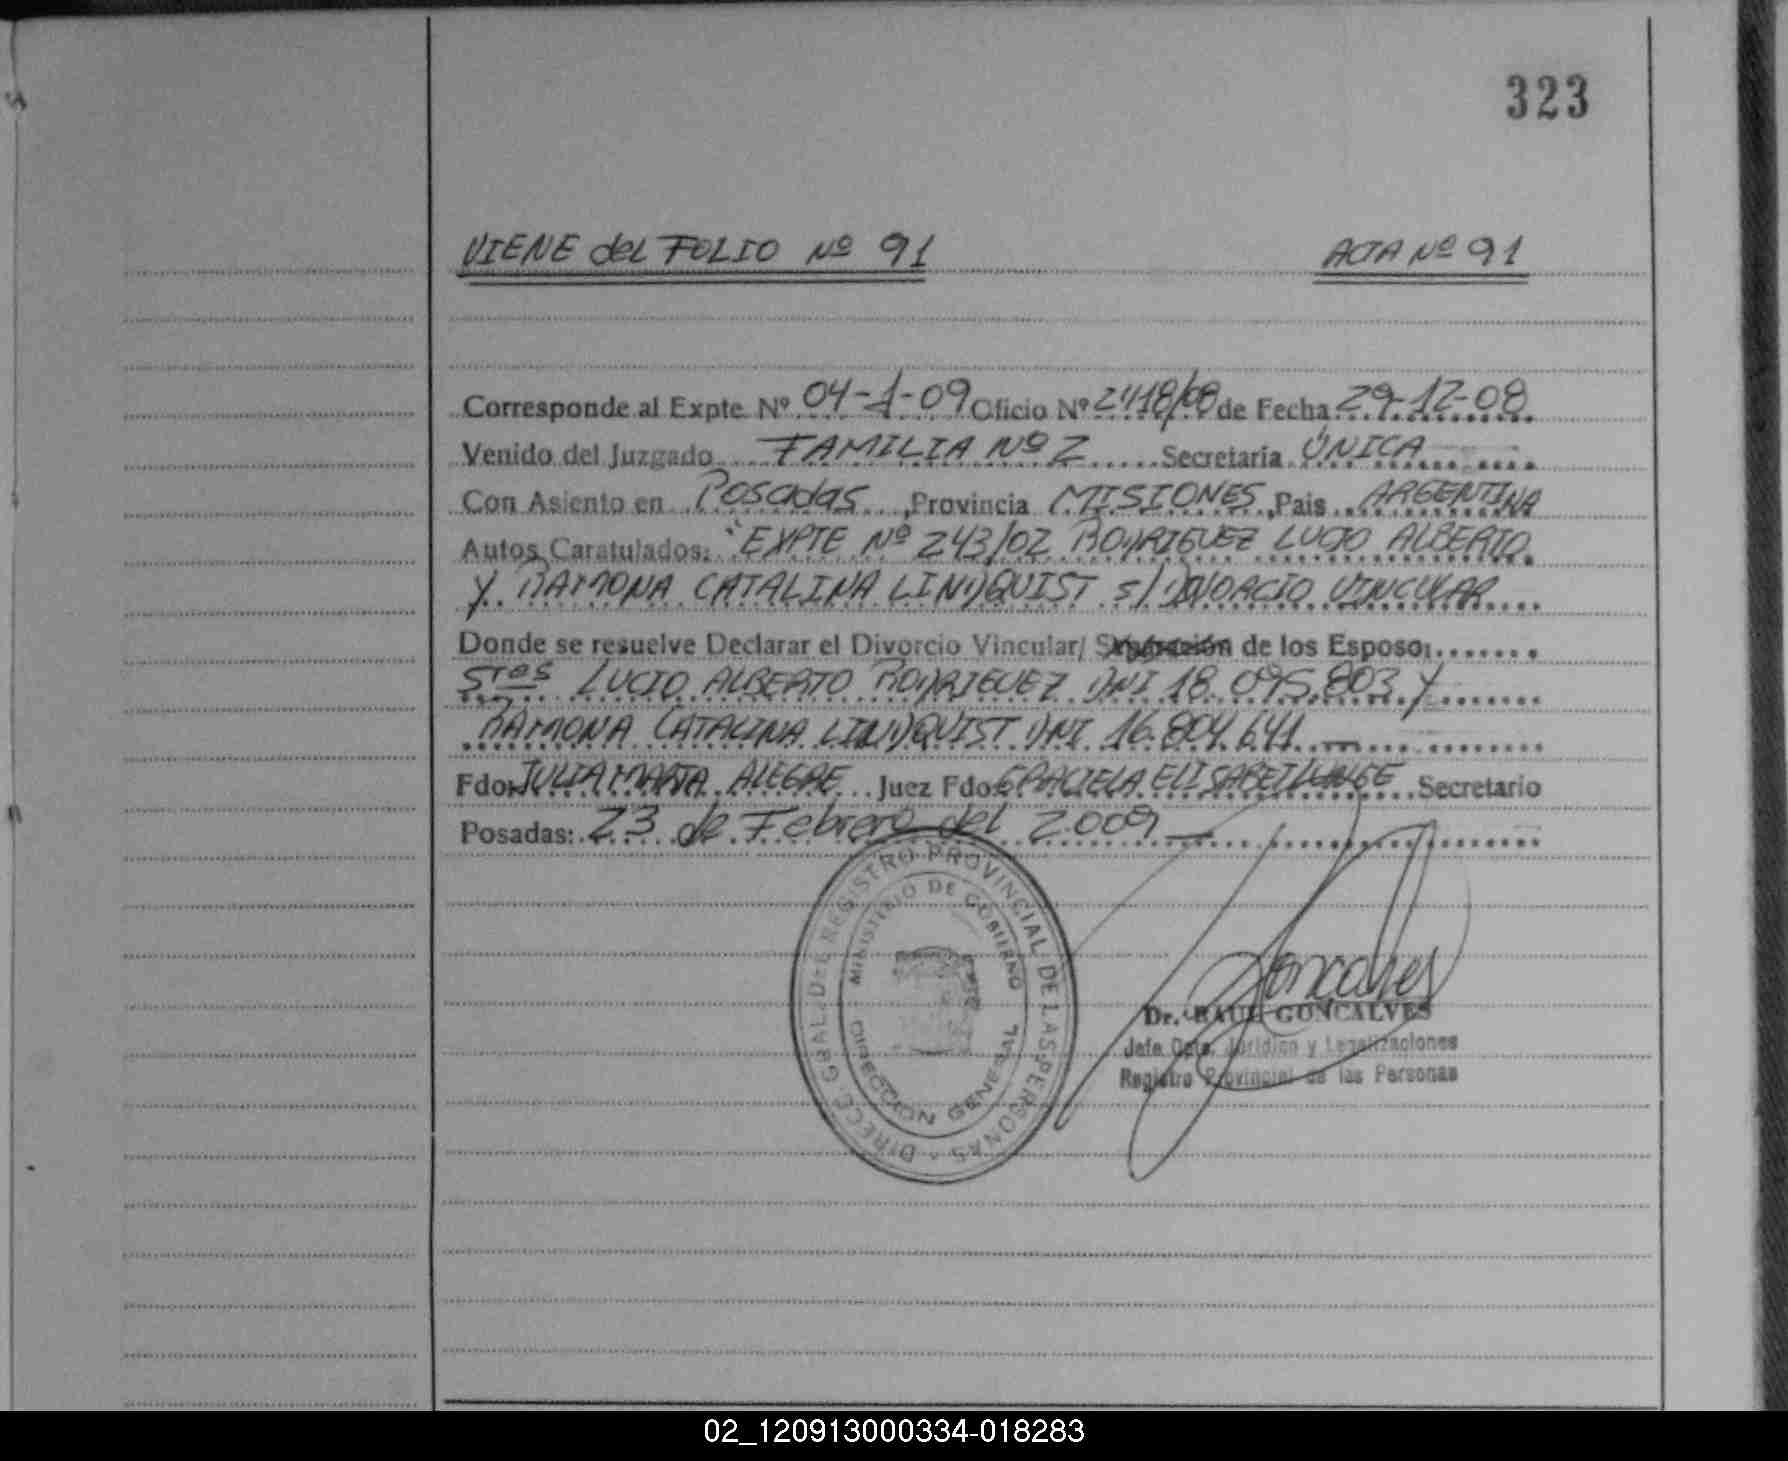 323
VIENE del FOLIO Nº 91 ACTA Nº 91
Corresponde al Expte Nº 04-1-09 Oficio Nº 2418/08 de Fecha 29-12-08
Venido del Juzgado FAMILIA Nº 2 Secretaria ÚNICA
Con Asiento en Posadas, Provincia MISIONES, Pais ARGENTINA
Autos Caratulados: "EXPTE Nº 243/02 RODRIGUEZ LUCIO ALBERTO
Y RAMONA CATALINA LINDQUIST s/ DIVORCIO VINCULAR
Donde se resuelve Declarar el Divorcio Vincular/ de los Esposo:
Sres LUCIO ALBERTO RODRIGUEZ DNI 18.095.803 Y
RAMONA CATALINA LINDQUIST DNI 16.804.641
Fdo: JULIA MARTA ALEGRE Juez Fdo: GRACIELA ELISABET Secretario
Posadas: 23 de Febrero del 2009
DIRECC. GRAL. DEL REGISTRO PROVINCIAL DE LAS PERSONAS
MINISTERIO DE GOBIERNO
DIRECCION GENERAL
Goncalves
Dr. RAUL GONCALVES
Jefe Dpto. Jurídico y Legalizaciones
Registro Provincial de las Personas
02_120913000334-018283